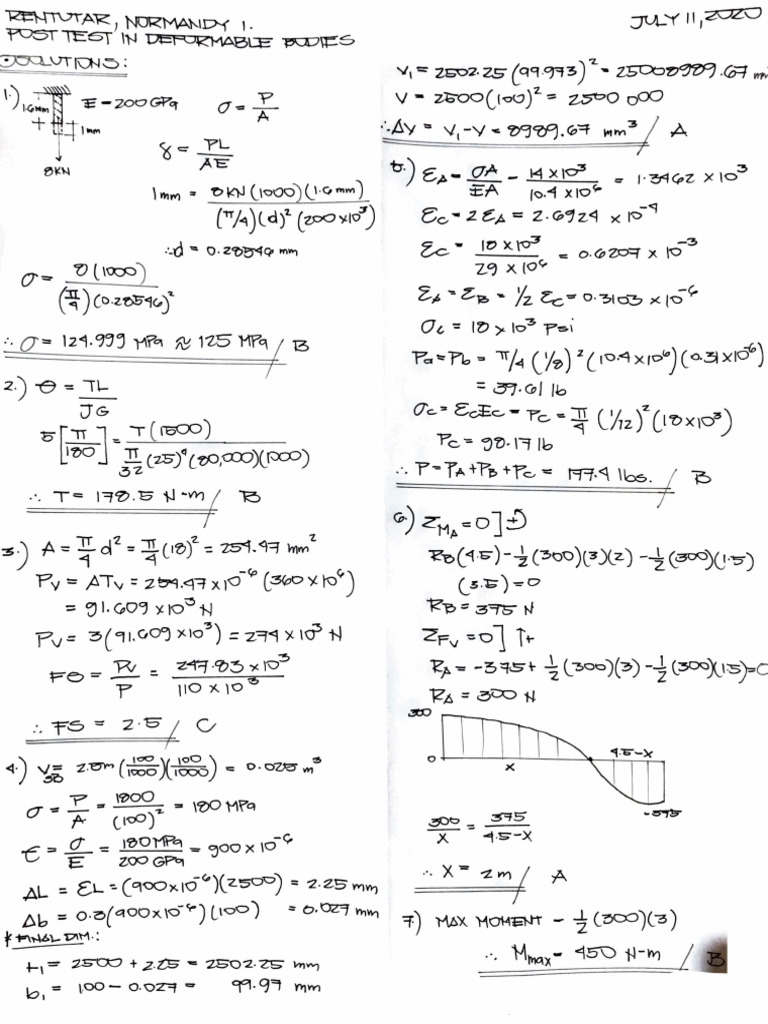 RENTUTAR, NORMANDY I.
JULY 11, 2020
POST TEST IN DEFORMABLE BODIES
SOLUTIONS:
1.)
1.6mm
1mm
8KN
E = 200 GPa
σ = P/A
δ = PL/AE
1mm = 8KN(1000)(1.6mm) / (π/4)(d)²(200×10³)
∴d = 0.28546 mm
σ = 8(1000) / (π/4)(0.28546)²
∴ σ = 124.999 MPa ≈ 125 MPa / B
2.) θ = TL/JG
5[π/180] = T(1500) / π/32 (25)⁴(80,000)(1000)
∴ T = 178.5 N-m / B
3.) A = π/4 d² = π/4 (18)² = 254.47 mm²
Pv = ATv = 254.47×10⁻⁶(360×10⁶)
= 91.609×10³ N
Pv = 3(91.609×10³) = 274×10³ N
FS = Pv/P = 247.83×10³ / 110×10³
∴ FS = 2.5 / C
4.) V = 2.5m (100/1000)(100/1000) = 0.025 m³
σ = P/A = 1800/(100)² = 180 MPa
ε = σ/E = 180MPa/200GPa = 900×10⁻⁶
ΔL = εL = (900×10⁻⁶)(2500) = 2.25 mm
Δb = 0.3(900×10⁻⁶)(100) = 0.027 mm
* FINAL DIM.:
t₁ = 2500 + 2.25 = 2502.25 mm
b₁ = 100 - 0.027 = 99.97 mm
V₁ = 2502.25(99.973)² = 25008989.67
V = 2500(100)² = 2500 000
∴ΔV = V₁-V = 8989.67 mm³ / A
5.) εA = σA/EA = 14×10³/10.4×10⁶ = 1.3462×10³
εC = 2εA = 2.6924×10⁻⁴
εC = 18×10³/29×10⁶ = 0.6207×10⁻³
εA = εB = 1/2 εC = 0.3103×10⁻⁶
σc = 18×10³ Psi
Pa = Pb = π/4 (1/8)²(10.4×10⁶)(0.31×10⁻⁶)
= 39.61 lb
σc = εcEc = Pc = π/4 (1/12)²(18×10³)
Pc = 98.17 lb
∴ P = PA + PB + PC = 177.4 lbs. / B
6.) ΣMA = 0] +
RB(4.5) - 1/2(300)(3)(2) - 1/2(300)(1.5)
(3.5) = 0
RB = 375 N
ΣFV = 0] ↑+
RA = -375 + 1/2(300)(3) - 1/2(300)(15) = 0
RA = 300 N
300
0
x
4.5-x
-375
300/x = 375/4.5-x
∴ x = 2m / A
7.) MAX MOMENT = 1/2(300)(3)
∴ Mmax = 450 N-m / B